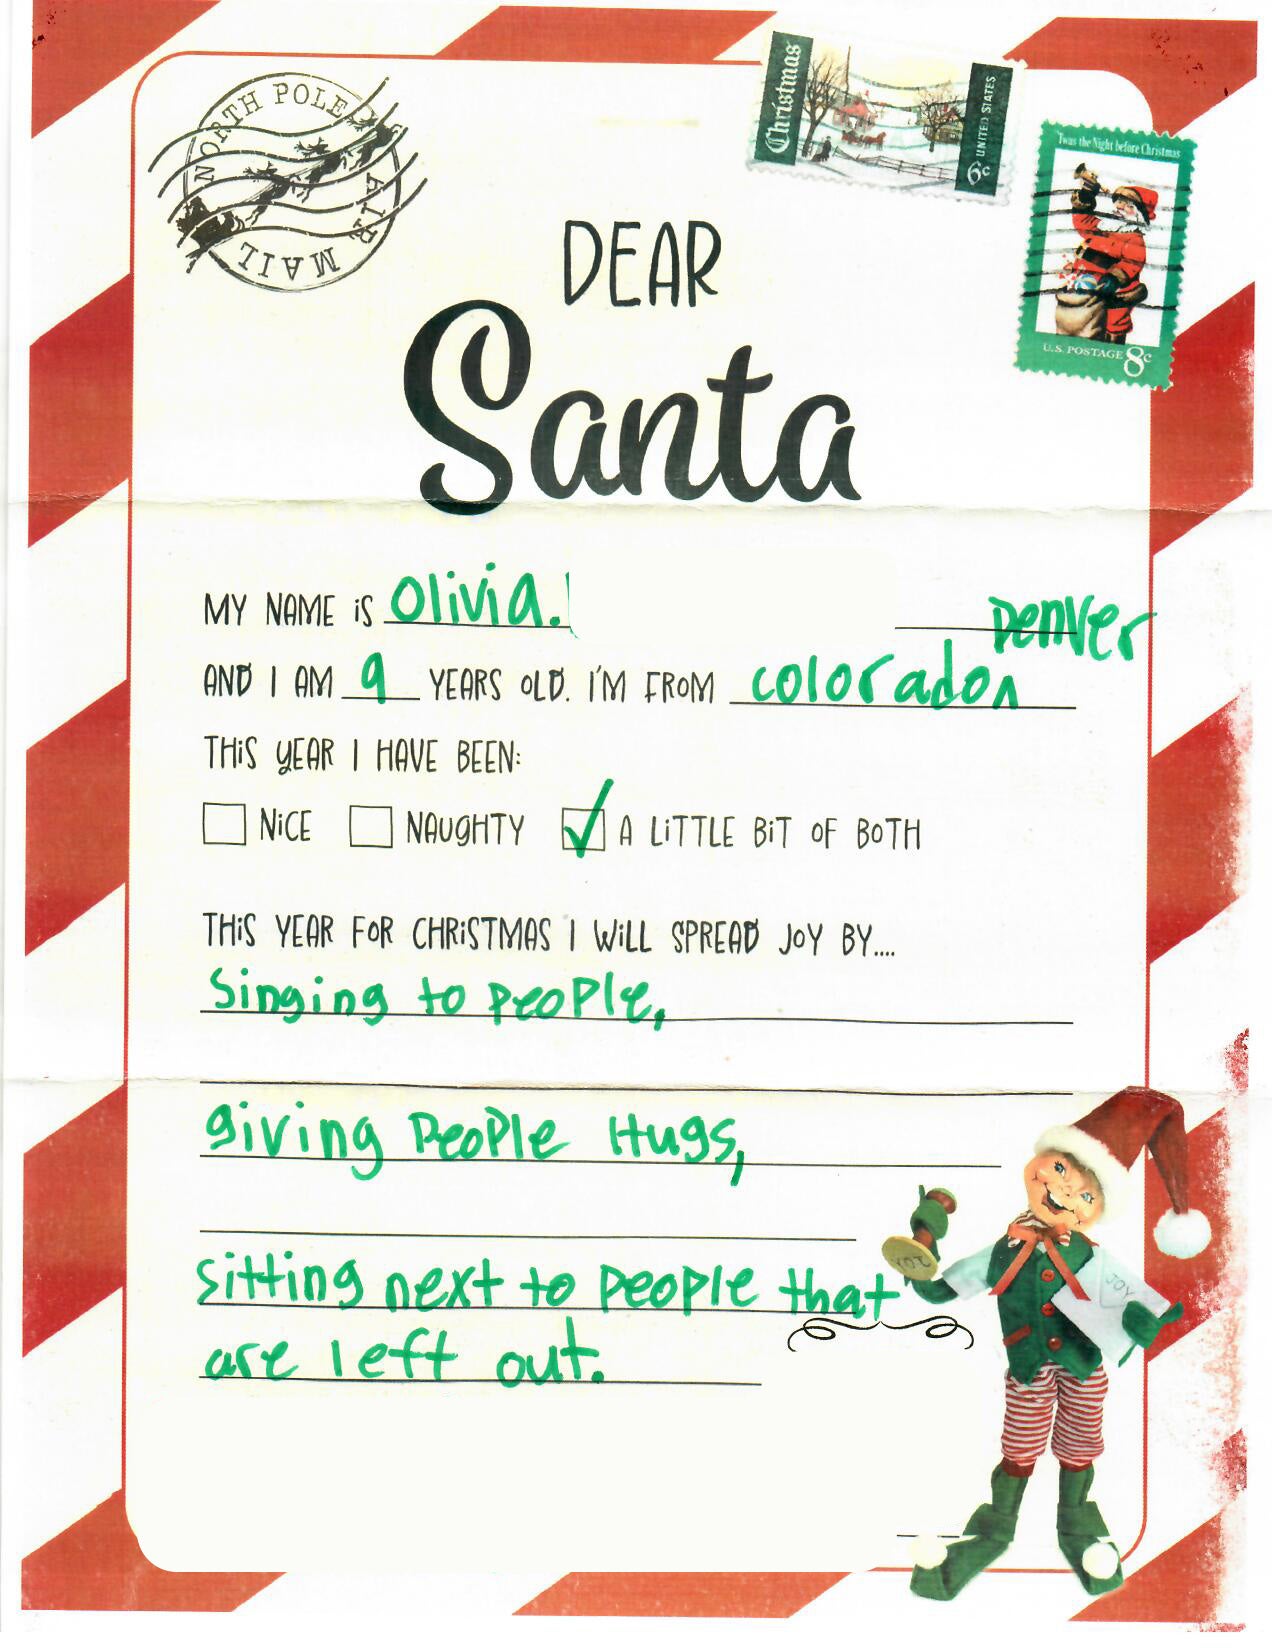 NORTH POLE
AIR MAIL
Christmas
UNITED STATES
6c
'Twas the Night before Christmas
U.S. POSTAGE 8c
DEAR
Santa
MY NAME iS Olivia.
Denver
AND I AM 9 YEARS OLD. I'M FROM colorado
THiS YEAR I HAVE BEEN:
NiCE NAUGHTY ✓ A LiTTLE BiT OF BOTH
THiS YEAR FOR CHRiSTMAS I WiLL SPREAD JOY BY....
Singing to people,
giving people Hugs,
sitting next to people that
are left out.
JOY
JOY